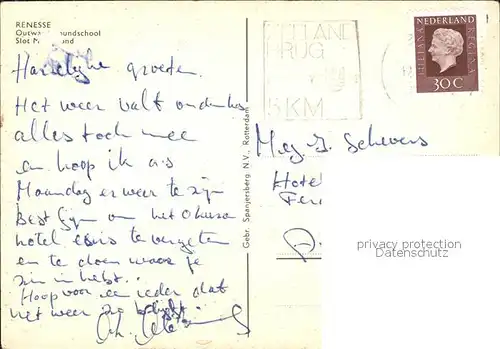 RENESSE
Slot M
Hartelijke groeten.
Het weer valt ondanks
alles toch mee
en hoop ik a.s
Maandag er weer te zijn
Best fijn om het
hotel eens te vergeten
en te doen waar je
zin in hebt.
Hoop voor een ieder dat
het weer zo blijft.
Gebr. Spanjersberg N.V., Rotterdam
5 KM
NEDERLAND
JULIANA
REGINA
30 C
Mej. J. Schevers
Hotel
privacy protection
Datenschutz